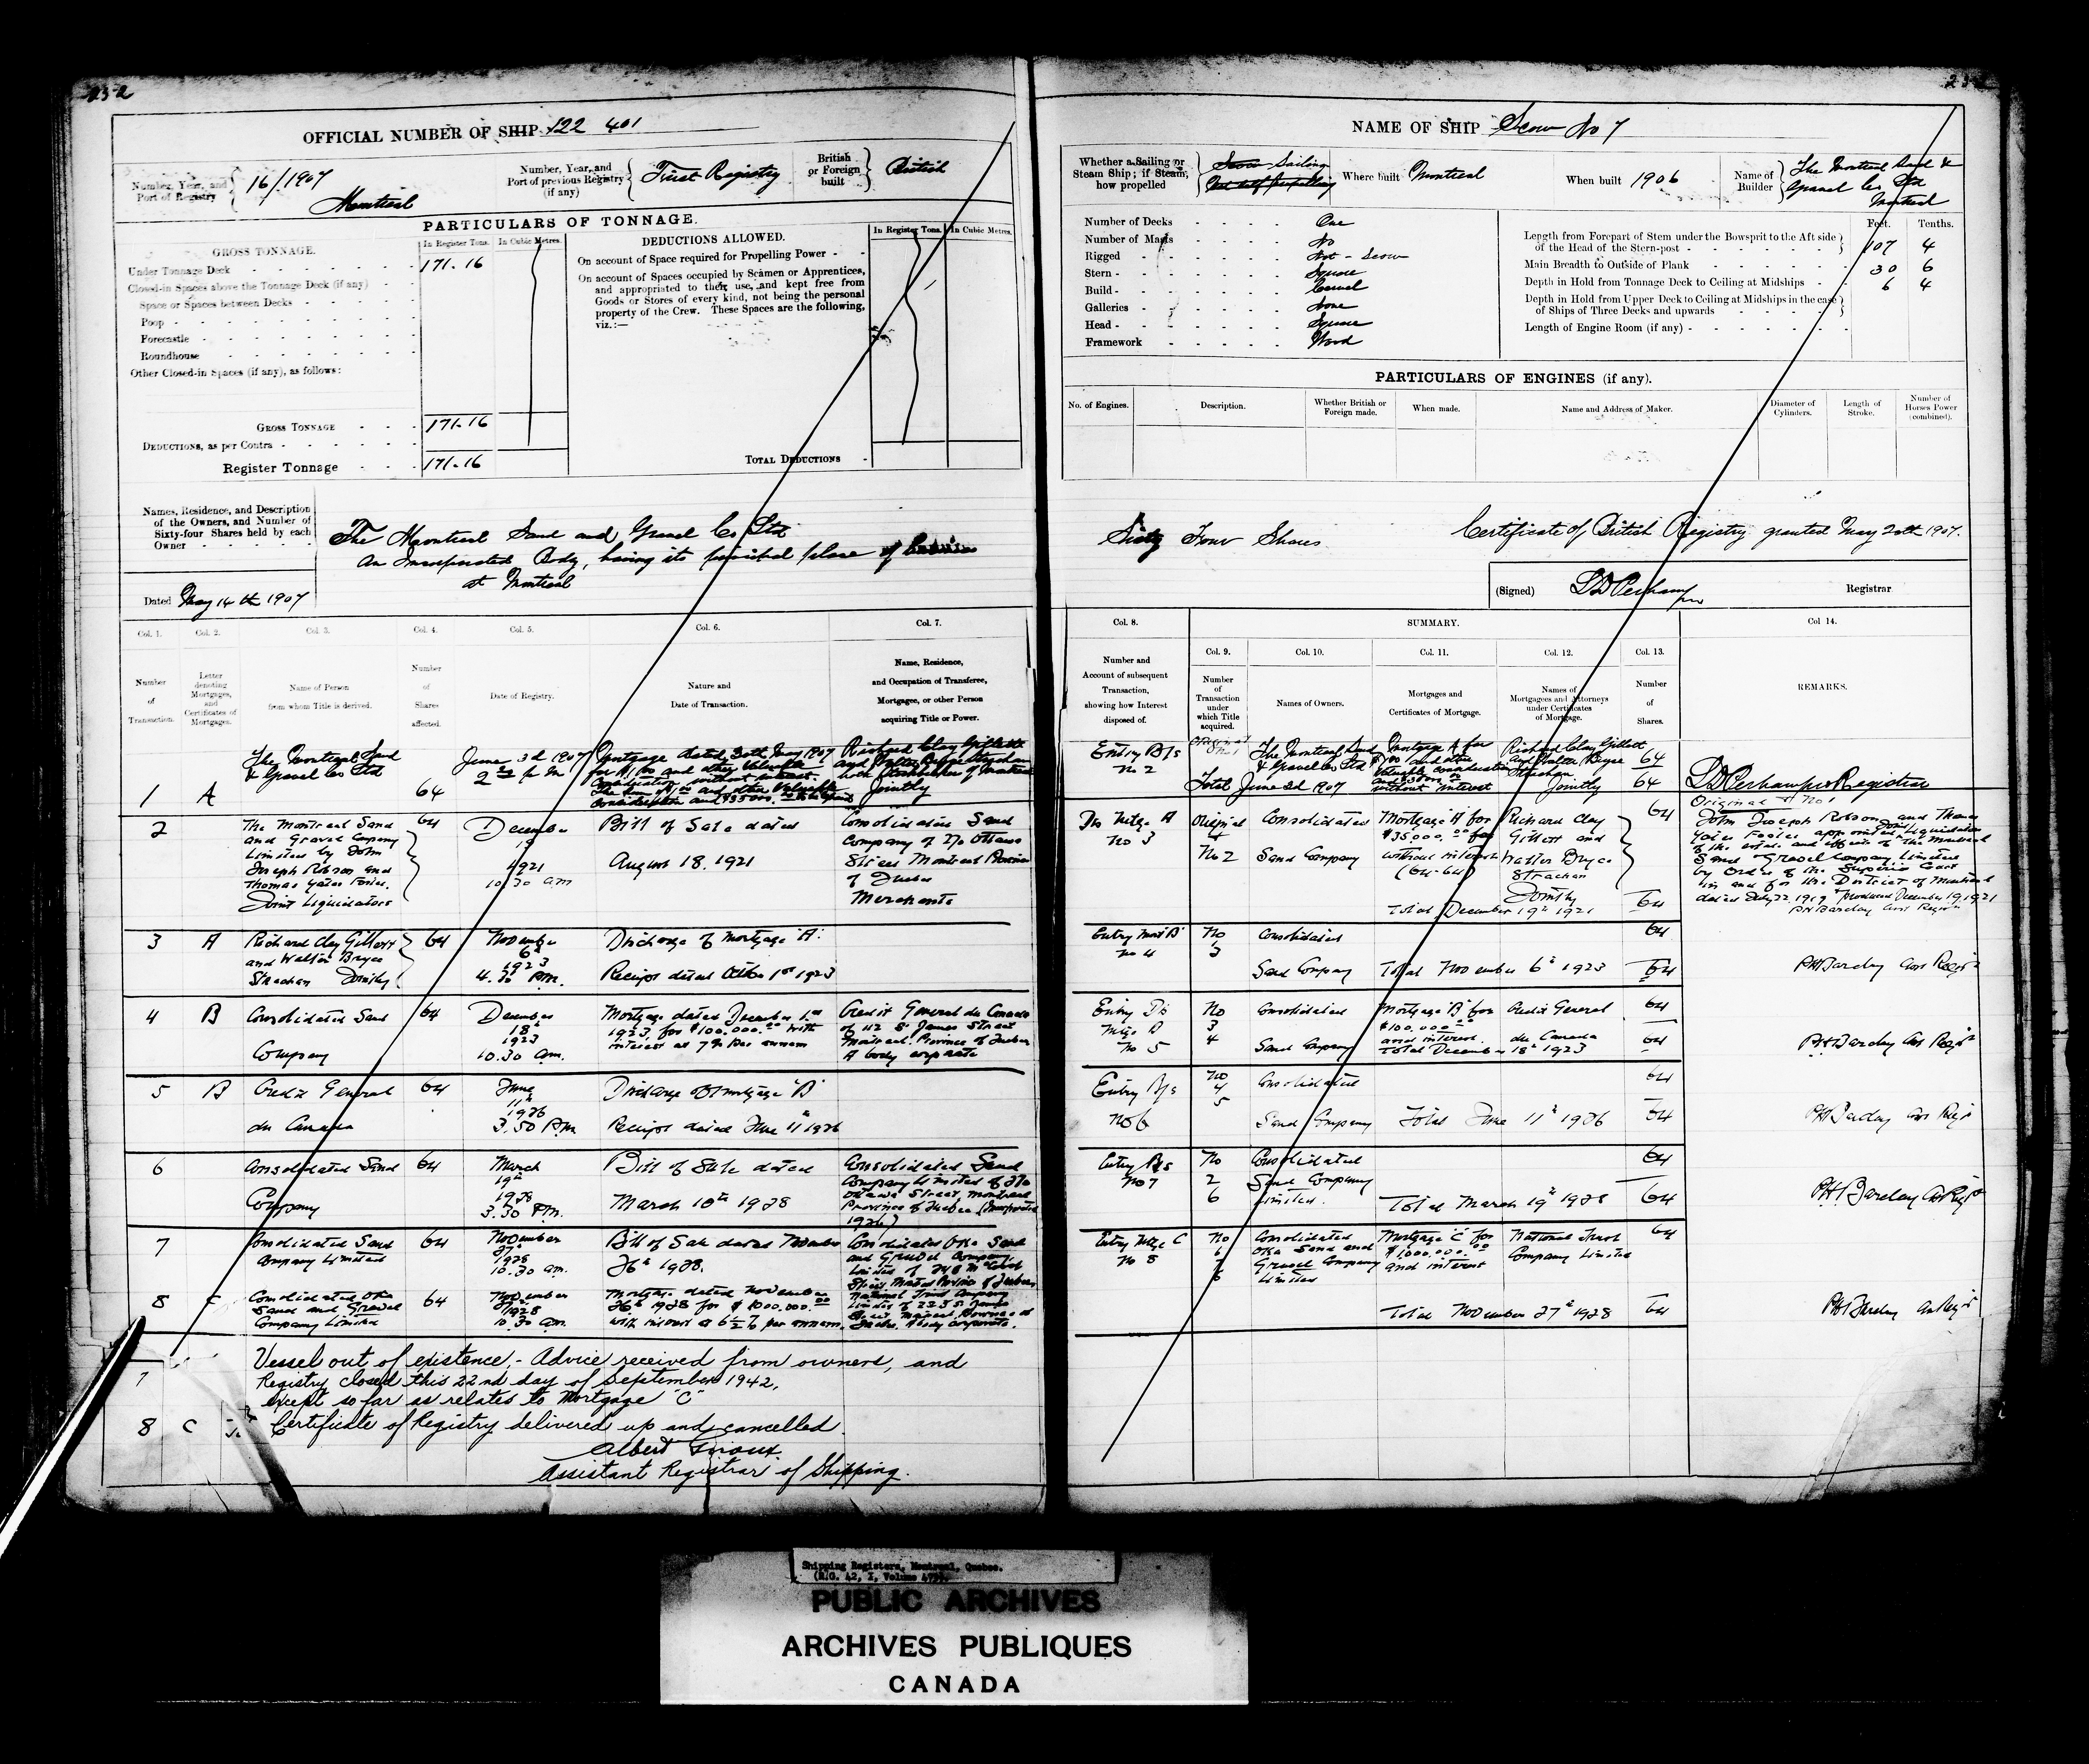 232
OFFICIAL NUMBER OF SHIP 122 401
Number, Year, and Port of Registry
16/1907
Montreal
Number, Year, and Port of previous Registry (if any)
First Registry
British or Foreign built
British
PARTICULARS OF TONNAGE.
GROSS TONNAGE.
In Register Tons.
In Cubic Metres.
Under Tonnage Deck
171.16
Closed-in Spaces above the Tonnage Deck (if any)
Space or Spaces between Decks
Poop
Forecastle
Roundhouse
Other Closed-in Spaces (if any), as follows:
GROSS TONNAGE
171.16
DEDUCTIONS, as per Contra
Register Tonnage
171.16
DEDUCTIONS ALLOWED.
In Register Tons.
In Cubic Metres.
On account of Space required for Propelling Power
On account of Spaces occupied by Seamen or Apprentices,
and appropriated to their use, and kept free from
Goods or Stores of every kind, not being the personal
property of the Crew. These Spaces are the following,
viz.:—
TOTAL DEDUCTIONS
Names, Residence, and Description
of the Owners, and Number of
Sixty-four Shares held by each
Owner
The Montreal Sand and Gravel Co Ltd
An Incorporated Body, having its principal place of business
at Montreal
Dated May 14th 1907
Col. 1.
Col. 2.
Col. 3.
Col. 4.
Col. 5.
Col. 6.
Col. 7.
Number of Transaction.
Letter denoting Mortgages, and Certificates of Mortgages.
Name of Person from whom Title is derived.
Number of Shares affected.
Date of Registry.
Nature and Date of Transaction.
Name, Residence, and Occupation of Transferee, Mortgagee, or other Person acquiring Title or Power.
1 A
The Montreal Sand
& Gravel Co Ltd
64
June 3d 1907
2 p m
Mortgage dated 30th May 1907
for $1.00 and other valuable
consideration without interest.
The sum of $1.00 and other valuable
consideration and $35000.
Richard Clay Gillett
and Walter Bryce Strachan
both of Montreal
Jointly
2
The Montreal Sand
and Gravel Company
Limited by John
Joseph Robson and
Thomas Yates Foster.
Joint Liquidators
64
December
19
1921
10.30 am
Bill of Sale dated
August 18. 1921
Consolidated Sand
Company of 270 Ottawa
Street Montreal Province
of Quebec
Merchants
3 A
Richard Clay Gillett
and Walter Bryce
Strachan Jointly
64
November
6th
1923
4.30 P.m.
Discharge of mortgage "A".
Receipt dated October 1st 1923
4 B
Consolidated Sand
Company
64
December
18th
1923
10.30 am.
Mortgage dated December 1st
1923 for $100.000.00 with
interest at 7% per annum
Credit General du Canada
of 112 St James Street
Montreal, Province of Quebec
A body corporate
5 B
Credit General
du Canada
64
June
11th
1926
3.50 P.m
Discharge of mortgage "B"
Receipt dated June 11th 1926
6
Consolidated Sand
Company
64
March
19th
1928
3.30 P.m.
Bill of Sale dated
March 10th 1928
Consolidated Sand
Company Limited of 270
Ottawa Street, Montreal
Province of Quebec (Incorporated
1926)
7
Consolidated Sand
Company Limited
64
November
27th
1928
10.30 am.
Bill of Sale dated November
26th 1928.
Consolidated Oka Sand
and Gravel Company
Limited of
8 C
Consolidated Oka
Sand and Gravel
Company Limited
64
November
27th
1928
10.30 am
Mortgage dated November
26th 1928 for $1000.000.00
with interest at 6½% per annum.
National Trust Company
Limited of 225 St James
Street Montreal, Province of
Quebec. A body corporate.
7
Vessel out of existence,- Advice received from owners, and
Registry closed this 22nd day of September 1942,
except so far as relates to Mortgage "C"
8 C
Certificate of Registry delivered up and cancelled.
Albert Giroux
Assistant Registrar of Shipping.
NAME OF SHIP Scow No 7
Whether a Sailing or Steam Ship; if Steam, how propelled
Scow Sailing
Not self propelling
Where built Montreal
When built 1906
Name of Builder
The Montreal Sand &
Gravel Co Ltd
Montreal
Number of Decks One
Number of Masts No
Rigged Not - Scow
Stern Square
Build Carvel
Galleries None
Head Square
Framework Wood
Feet. Tenths.
Length from Forepart of Stem under the Bowsprit to the Aft side
of the Head of the Stern-post 107 4
Main Breadth to Outside of Plank 30 6
Depth in Hold from Tonnage Deck to Ceiling at Midships 6 4
Depth in Hold from Upper Deck to Ceiling at Midships in the case
of Ships of Three Decks and upwards
Length of Engine Room (if any)
PARTICULARS OF ENGINES (if any).
No. of Engines.
Description.
Whether British or Foreign made.
When made.
Name and Address of Maker.
Diameter of Cylinders.
Length of Stroke.
Number of Horses Power (combined).
Sixty Four Shares
Certificate of British Registry granted May 20th 1907.
(Signed) Registrar
Col. 8.
SUMMARY.
Col 14.
Col. 9.
Col. 10.
Col. 11.
Col. 12.
Col. 13.
Number and Account of subsequent Transaction, showing how Interest disposed of.
Number of Transaction under which Title acquired.
Names of Owners.
Mortgages and Certificates of Mortgage.
Names of Mortgagees and Attorneys under Certificates of Mortgage.
Number of Shares.
REMARKS.
Entry B/s
No 2
Original
No 1
The Montreal Sand
& Gravel Co Ltd
Total June 3d 1907
Mortgage A for
$1.00 and other
valuable consideration
and $35000
without interest
Richard Clay Gillett
and Walter Bryce
Strachan
Jointly
64
64
Registrar
Dis Mtge A
No 3
Original
No 2
Consolidated
Sand Company
Mortgage "A" for
$35000.00
without interest
(64-64)
Richard Clay
Gillett and
Walter Bryce
Strachan
Jointly
64
Total December 19th 1921
64
Original No 1
John Joseph Robson and Thomas
Yates Foster appointed Joint Liquidators
of the estate and effects of the Montreal
Sand & Gravel Company Limited
by Order of the Superior Court
in and for the District of Montreal
dated July 22, 1919 Produced December 19, 1921
PH Barclay Asst Registr
Entry Mort B
No 4
No
3
Consolidated
Sand Company
Total November 6th 1923
64
64
PH Barclay Asst Registr
Entry Dis
Mtge B
No 5
No
3
4
Consolidated
Sand Company
Mortgage "B" for
$100.000.00
and interest.
Total December 18th 1923
Credit General
du Canada
64
64
PH Barclay Asst Registr
Entry B/s
No 6
No
4
5
Consolidated
Sand Company
Total June 11th 1926
64
64
PH Barclay Asst Registr
Entry B/s
No 7
No
2
6
Consolidated
Sand Company
Limited.
Total March 19th 1928
64
64
PH Barclay Asst Registr
Entry Mtge C
No 8
No
6
7
8
Consolidated
Oka Sand and
Gravel Company
Limited
Mortgage "C" for
$1,000.000.00
and interest
National Trust
Company Limited
64
Total November 27th 1928
64
PH Barclay Asst Registr
Shipping Registers, Montreal, Quebec.
(R.G. 42, I, Volume
PUBLIC ARCHIVES
ARCHIVES PUBLIQUES
CANADA